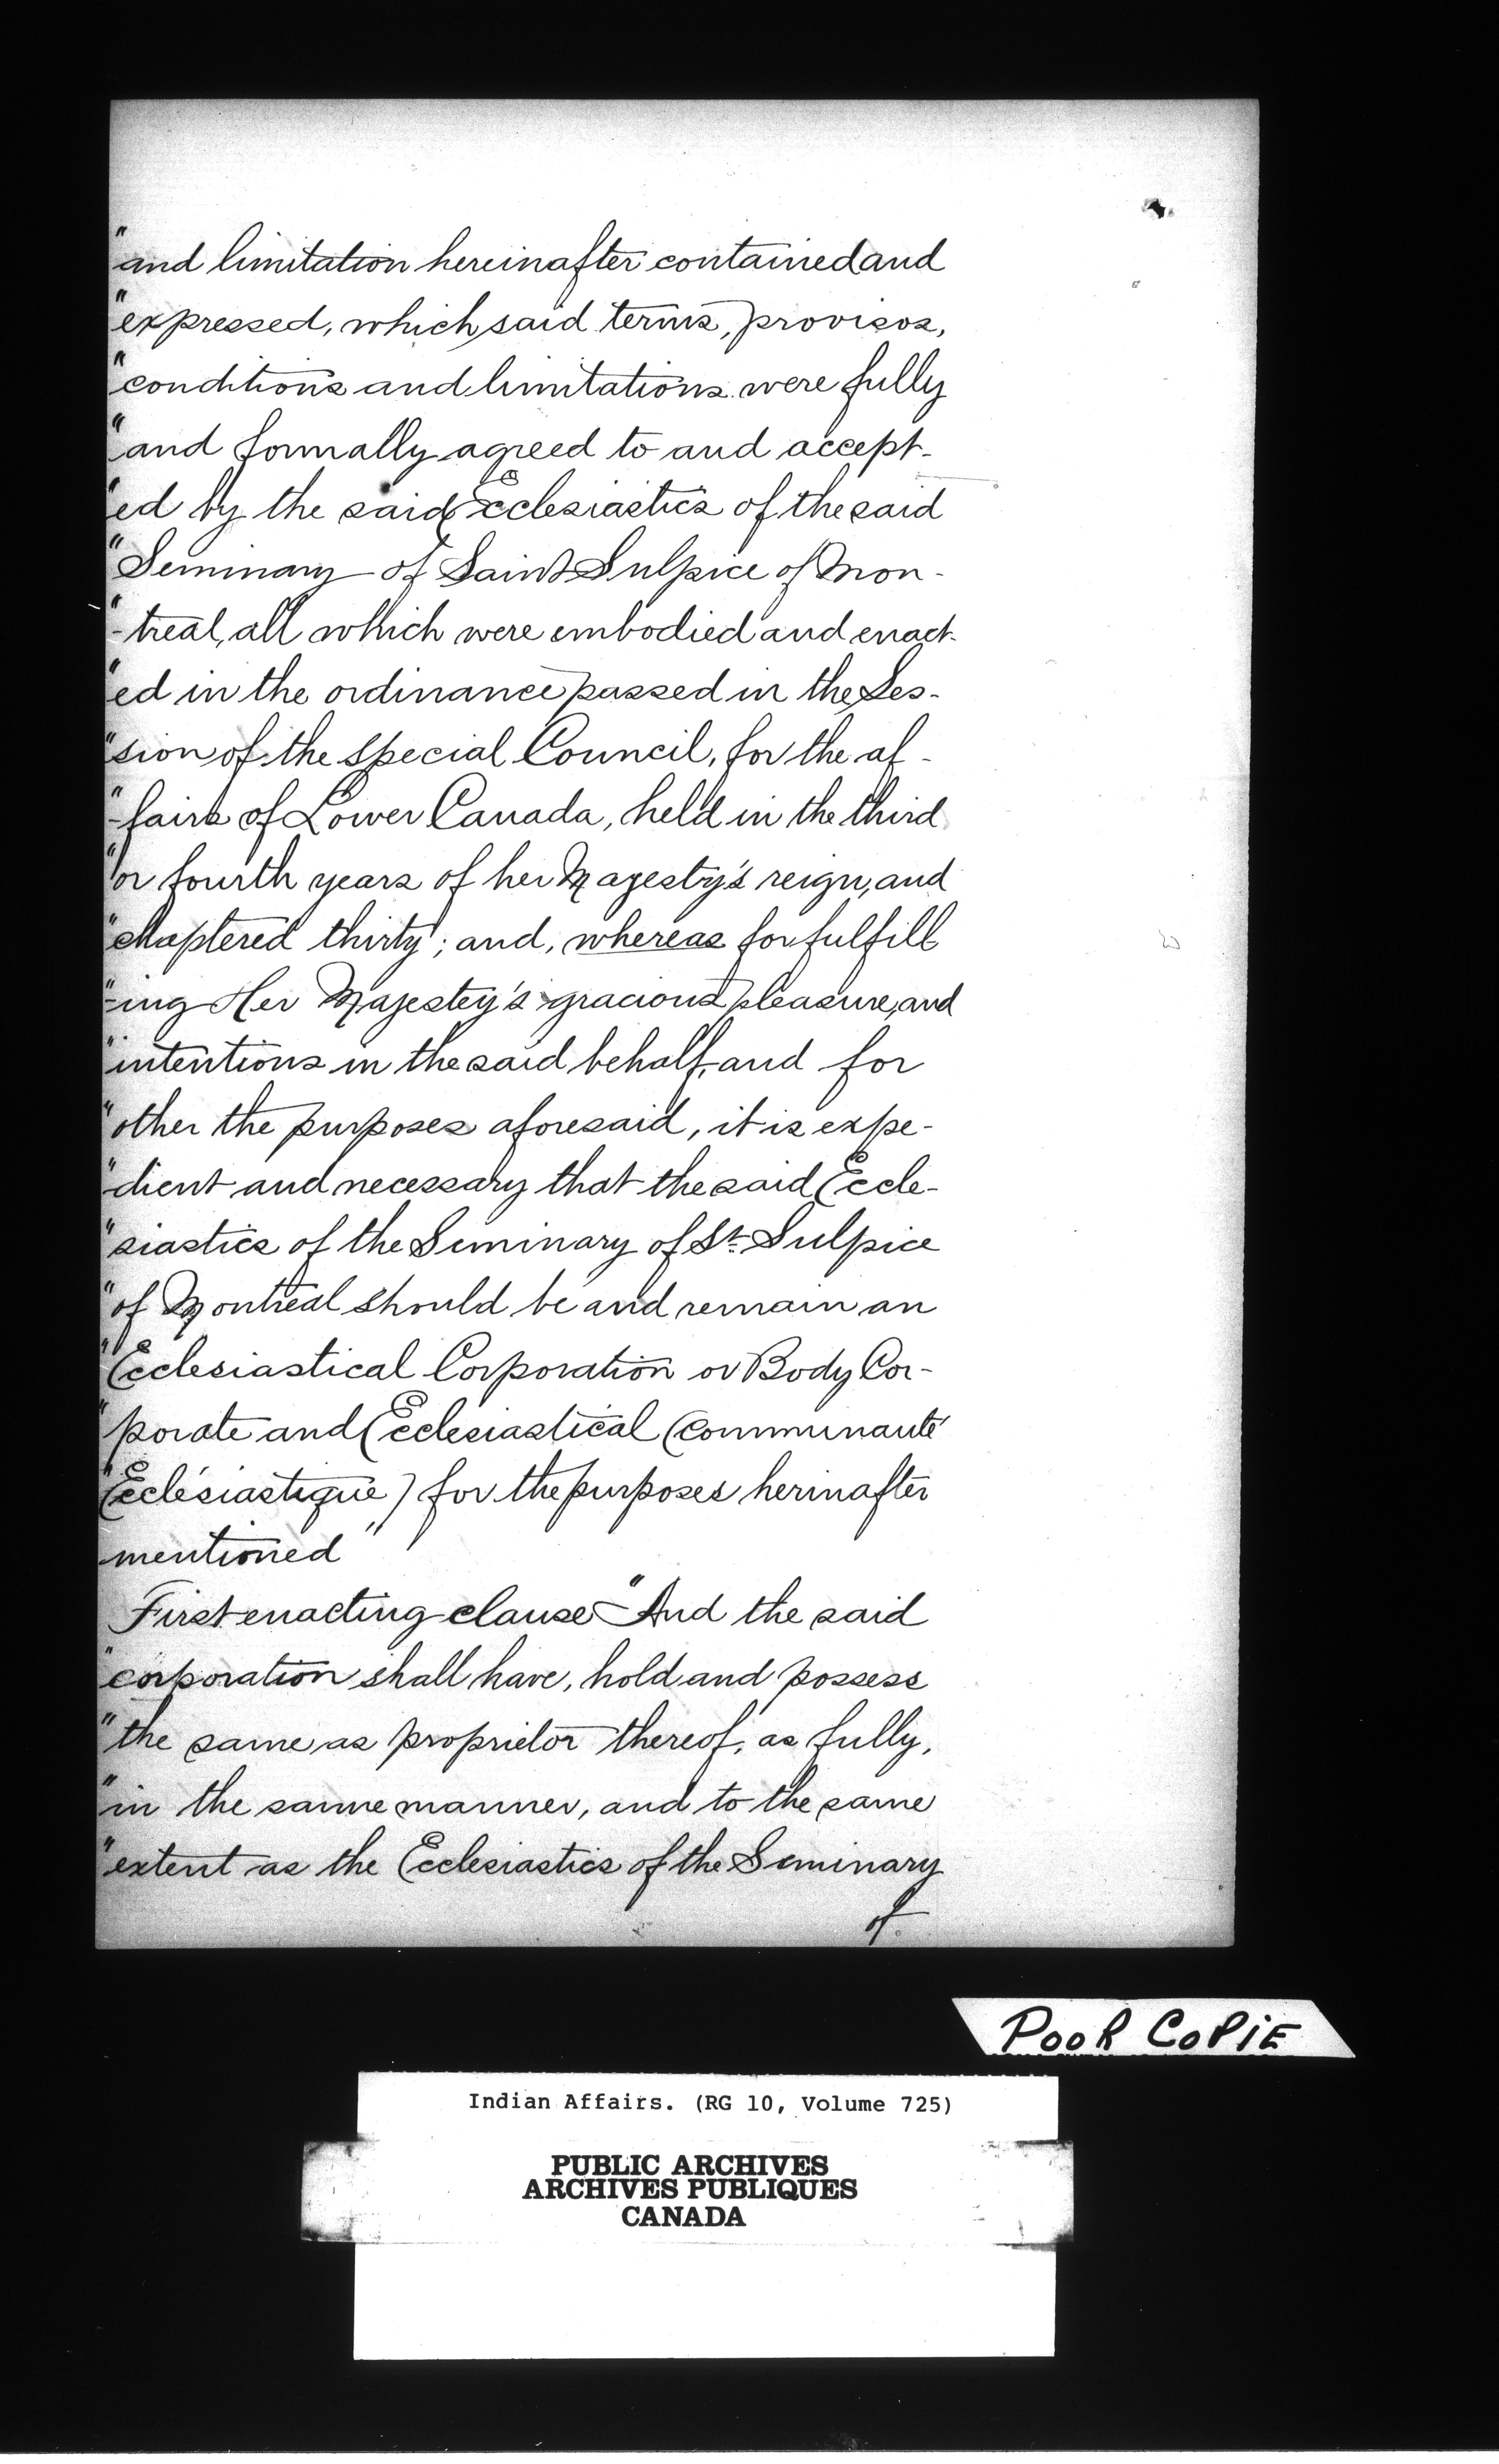 "and limitation hereinafter contained and
"expressed, which said terms, provisos,
"conditions and limitations were fully
"and formally agreed to and accept-
"ed by the said Ecclesiastics of the said
"Seminary of Saint Sulpice of Mon-
"-treal, all which were embodied and enact-
"ed in the ordinance passed in the Ses-
"sion of the special Council, for the af-
"-fairs of Lower Canada, held in the third
"or fourth years of her Majesty's reign, and
"chaptered thirty; and, whereas for fulfill
"-ing Her Majestey's gracious pleasure, and
"intentions in the said behalf, and for
"other the purposes aforesaid, it is expe-
"-dient and necessary that the said Eccle-
"siastics of the Seminary of St. Sulpice
"of Montreal should be and remain an
"Ecclesiastical Corporation or Body Cor-
"porate and Ecclesiastical (communauté
"Eclésiastique) for the purposes herinafter
mentioned"
First enacting clause "And the said
"corporation shall have, hold and possess
"the same as proprietor thereof, as fully,
"in the same manner, and to the same
"extent as the Ecclesiastics of the Seminary
of
POOR COPIE
Indian Affairs. (RG 10, Volume 725)
PUBLIC ARCHIVES
ARCHIVES PUBLIQUES
CANADA